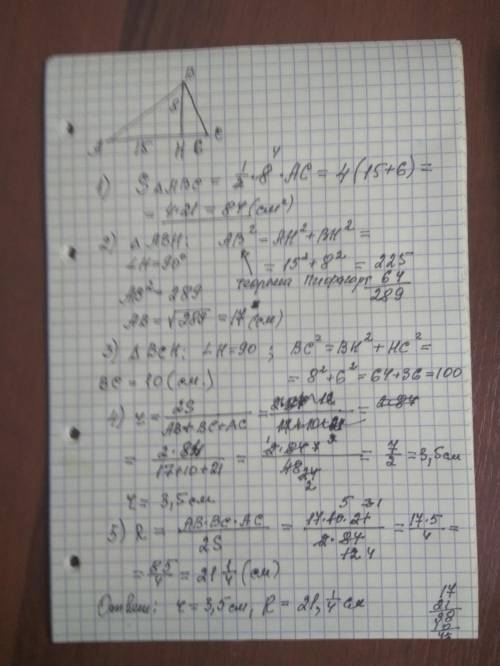 B
8
A 15 H 6 C
4
1) S△ABC = 1/2 · 8 · AC = 4(15+6) =
= 4·21 = 84 (см²)
2) △ABH: AB² = AH² + BH² =
∠H=90° = 15² + 8² = 225
AB² = 289 теорема Пифагора 64
289
AB = √289 = 17 (см)
3) △BCH: ∠H=90 ; BC² = BH² + HC² =
BC = 10 (см.) = 8² + 6² = 64+36 = 100
4) r = 2S / (AB+BC+AC) =
= 2·84 / (17+10+21) = 2·84 / 48 = 7/2 = 3,5 см
24
2
r = 3,5 см
5 21
5) R = AB·BC·AC / 2S = 17·10·21 / 2·84 = 17·5 / 4 =
12 4
= 85/4 = 21 1/4 (см)
Ответ: r = 3,5 см, R = 21, 1/4 см
17
21